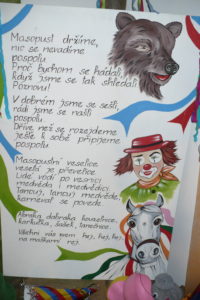 Masopust držíme,
nic se nevadíme
pospolu
Proč bychom se hádali,
když jsme se tak shledali
Poznovu!
V dobrém jsme se sešli,
rádi jsme se našli
pospolu
Dříve než se rozejdeme
ještě k sobě připijeme
pospolu
Masopustní veselice
veselá je převelice
Lidé vodí po vesnici
medvěda i medvědici.
Tancuj, tancuj, medvěde
karneval se povede.
kouzelnice,
šašek, tanečnice.
Všichni vás zvem hej, hej, hej,
na maškarní rej.